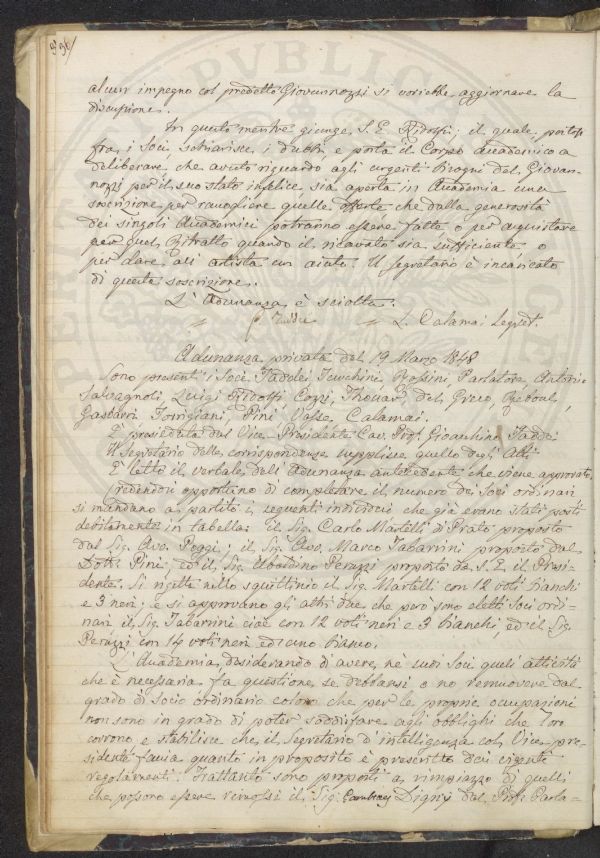 alcun impegno col predetto Giovannozzi si vorrebbe aggiornare la
discussione.
In questo mentre giunge S. E. Ridolfi; il quale, portatosi
fra i Soci, schiarisce i dubbi, e porta il Corpo Accademico a
deliberare, che avuto riguardo agli urgenti bisogni del Giovan-
nozzi per il suo stato infelice, sia aperta in Accademia una
soscrizione per raccogliere quelle offerte che dalla generosità
dei singoli Accademici potranno essere fatte o per acquistare
quel Ritratto quando il ricavato sia sufficiente, o
per dare all'artista un aiuto. Il Segretario è incaricato
di questa soscrizione.
L'Adunanza è sciolta.
Taddei L. Calamai Segret.
Adunanza privata del 19 Marzo 1848
Sono presenti i Soci Taddei, Tecchini, Rossini, Parlatore, Antoni
Salvagnoli, Luigi Ridolfi, Cozzi, Thouar, del Greco, Reboul,
Gasbarri, Torrigiani, Pini, Calamai.
È preseduta dal Vice-Presidente Cav. Prof. Gioacchino Taddei
Il Segretario delle corrispondenze supplisce quello degli Atti.
È letto il verbale dell'Adunanza antecedente che viene approvato.
Credendosi opportuno di completare il numero dei Soci ordinari
si mandano a partito i seguenti individui che già erano stati posti
debitamente in tabella: il Sig. Carlo Martelli di Prato proposto
dal Sig. Avv. Poggi, il Sig. Avv. Marco Tabarrini proposto dal
Dott. Pini, ed il Sig. Ubaldino Peruzzi proposto da S. E. il Presi-
dente. Si rigetta nello squittinio il Sig. Martelli con 12 voti bianchi
e 3 neri; e si approvano gli altri due che però sono eletti Soci ordi-
nari il Sig. Tabarrini cioè con 12 voti neri e 3 bianchi, ed il Sig.
Peruzzi con 14 voti neri ed uno bianco.
L'Accademia, desiderando di avere ne' suoi Soci quell'attività
che è necessaria fa questione se debbansi o no remuovere dal
grado di Socio ordinario coloro che per le proprie occupazioni
non sono in grado di poter soddisfare agli obblighi che loro
corrono e stabilisce che il Segretario d'intelligenza col Vice-pre-
sidente faccia quanto in proposito è prescritto dai vigenti
regolamenti. Frattanto sono proposti a rimpiazzo di quelli
che possono essere remossi il Sig. Cambray Digny dal Prof. Parla-